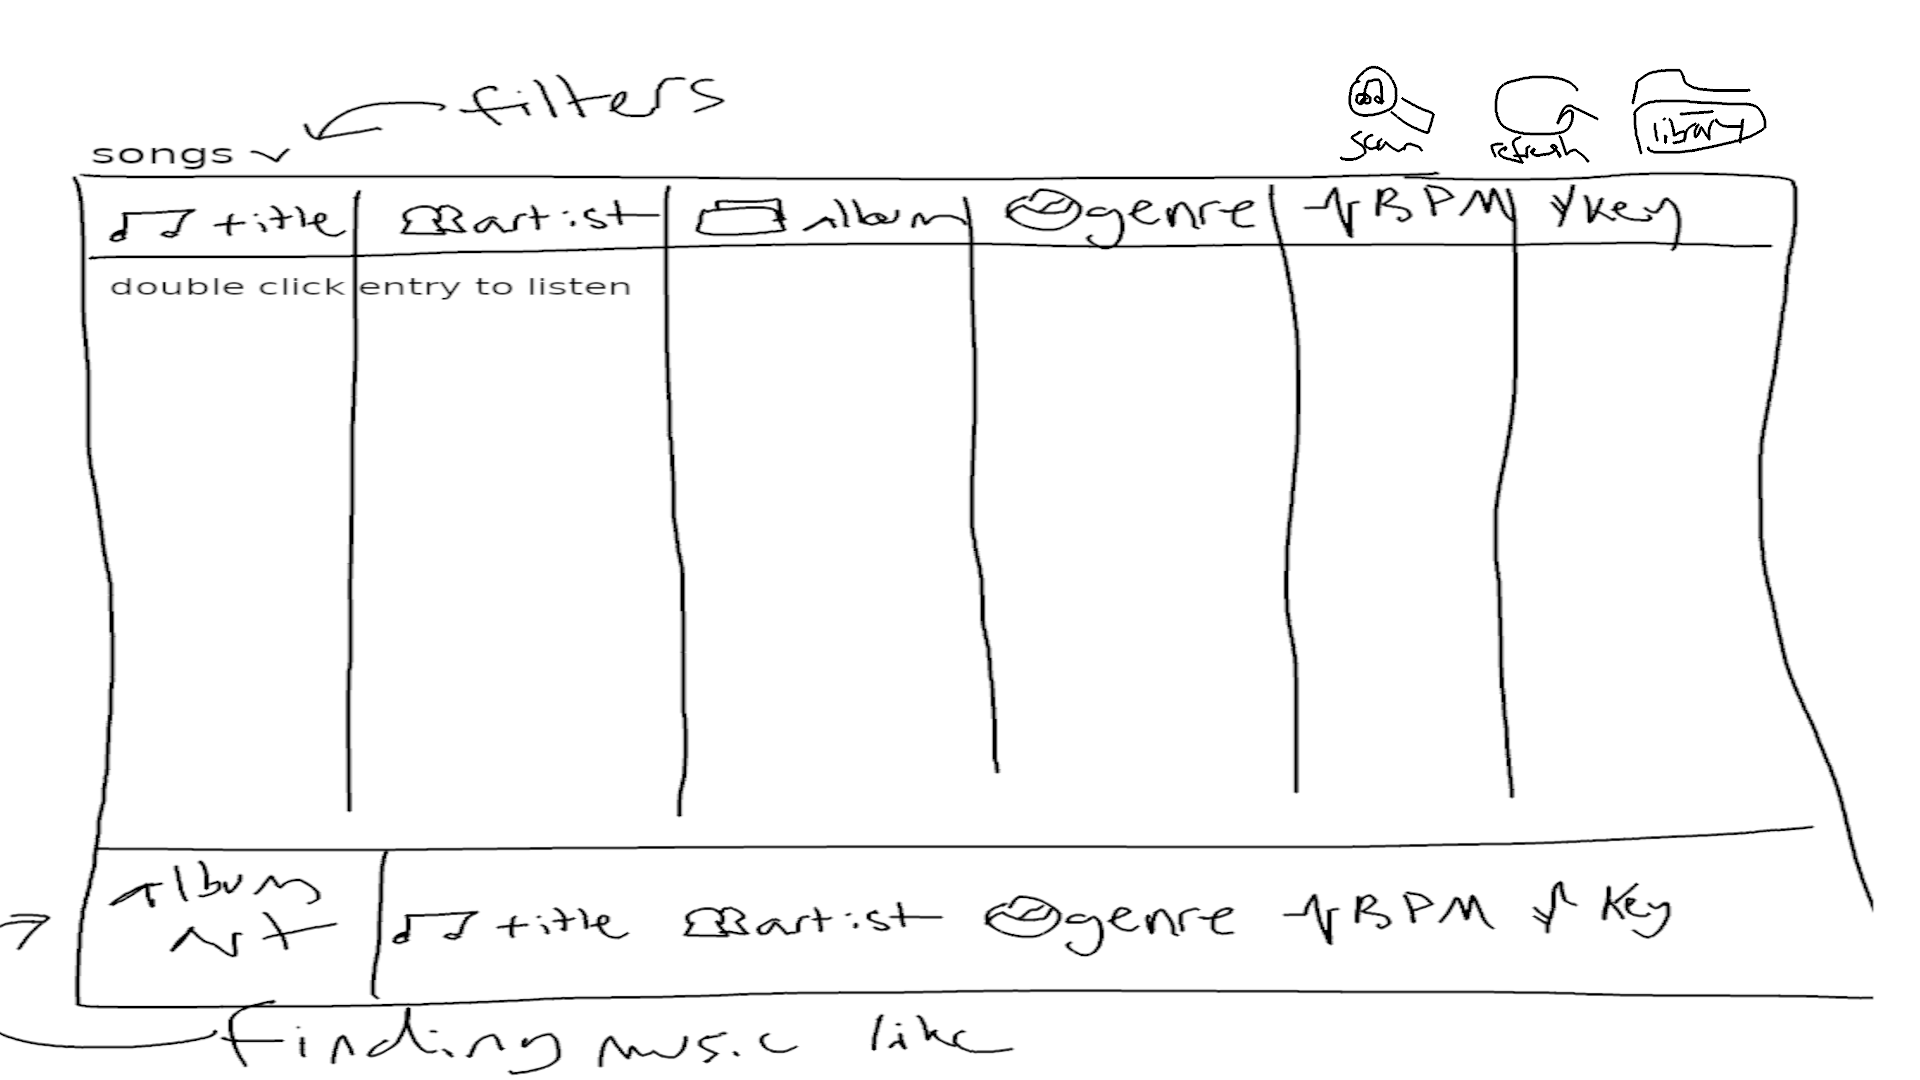 filters
songs
scan refresh library
title artist album genre BPM key
double click entry to listen
Album
Art
title artist genre BPM key
finding music like